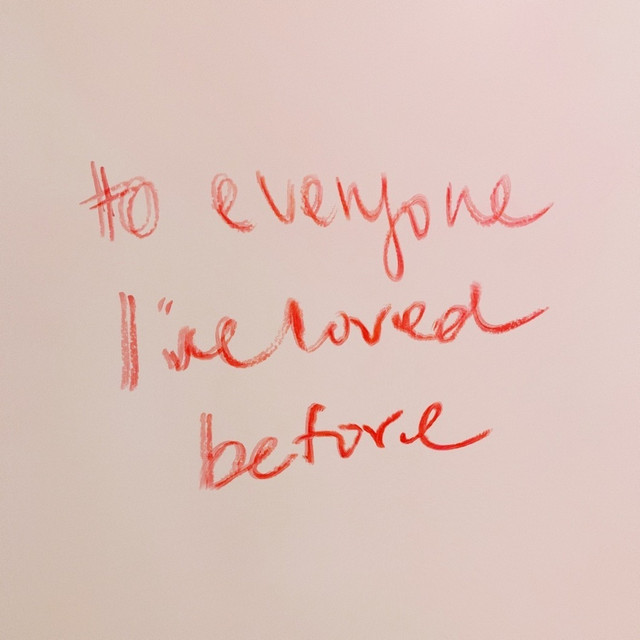 to everyone
I've loved
before